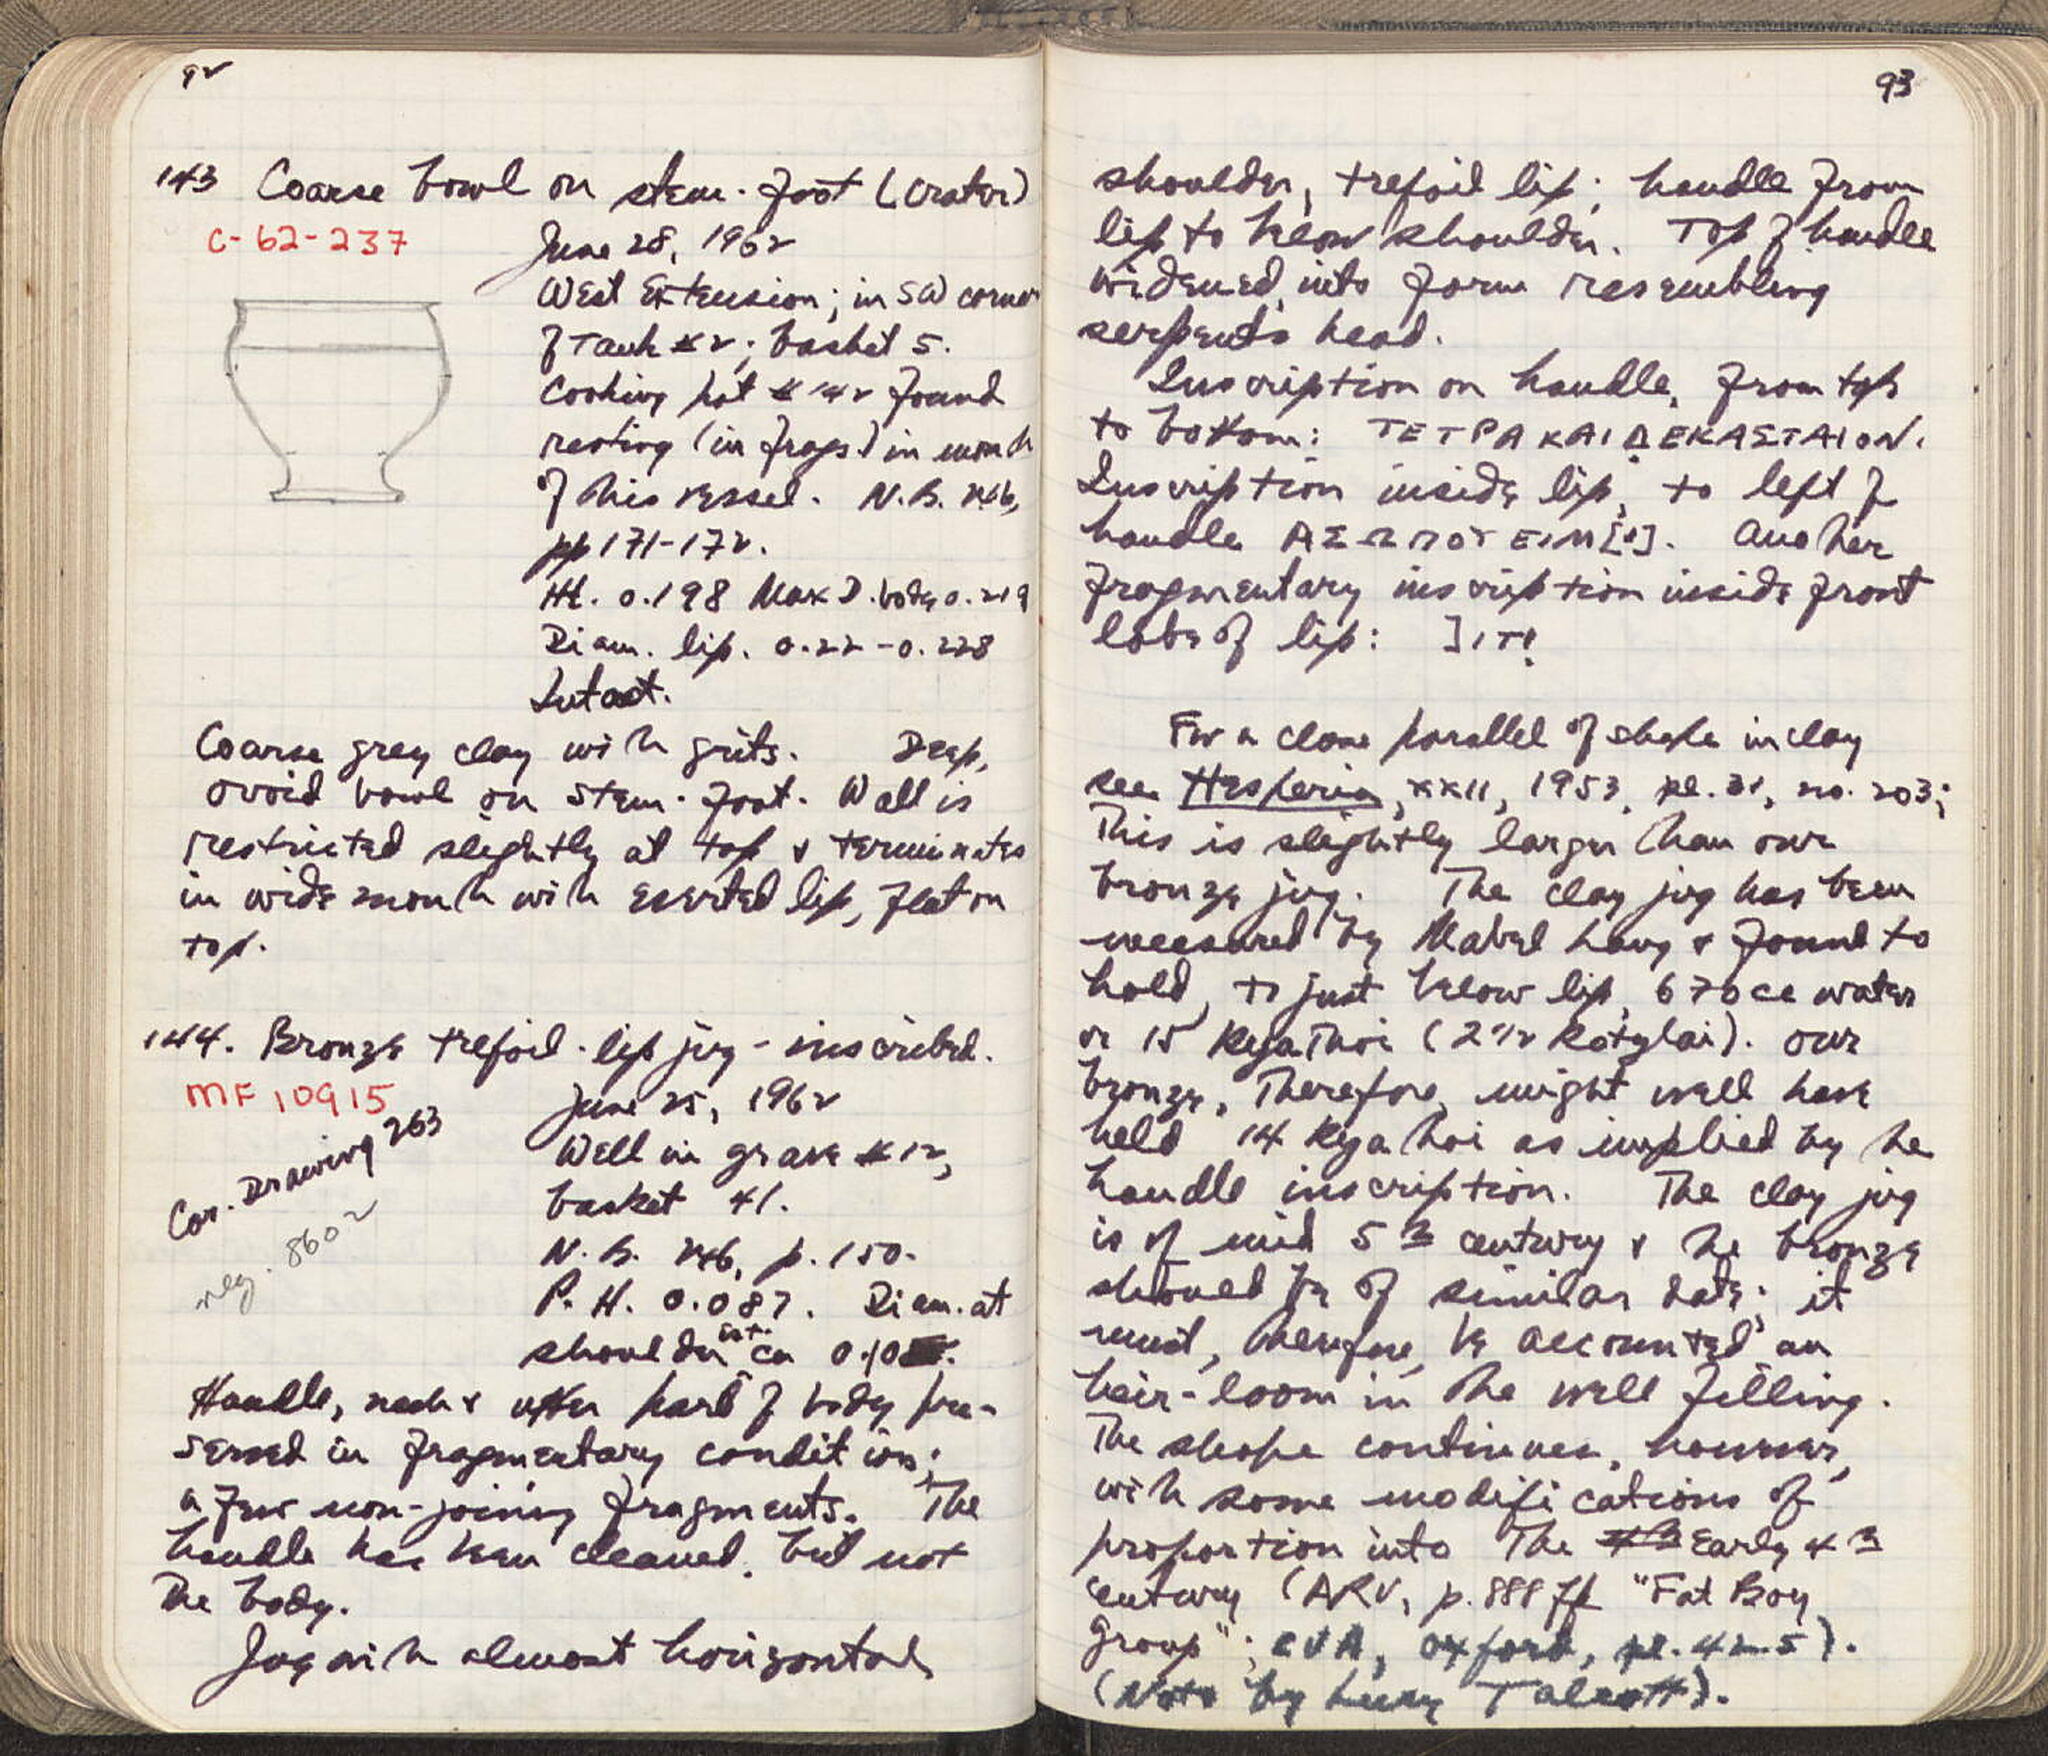 92
143 Coarse bowl on stem-foot (crater)
C-62-237
June 28, 1962
West Extension; in SW corner
of Tank #2; basket 5.
Cooking pot #142 found
resting (in frags.) in mouth
of this vessel. N.B. 246,
pp 171-172.
Ht. 0.198 Max D. body 0.219
Diam. lip. 0.22-0.228
Intact.
Coarse grey clay with grits. Deep,
ovoid bowl on stem-foot. Wall is
restricted slightly at top & terminates
in wide mouth with everted lip, flat on
top.
144. Bronze trefoil-lip jug - inscribed.
MF 10915
Cor. Drawing 263
neg. 8602
June 25, 1962
Well in grave #12,
basket 41.
N.B. 246, p. 150.
P. H. 0.087. Diam. at
shoulder est. ca 0.10
Handle, neck & upper part of body pre-
served in fragmentary condition;
a few non-joining fragments. The
handle has been cleaned, but not
the body.
Jug with almost horizontal
93
shoulder, trefoil lip; handle from
lip to below shoulder. Top of handle
widened into form resembling
serpent's head.
Inscription on handle, from top
to bottom: ΤΕΤΡΑΚΑΙΔΕΚΑΣΤΑΙΟΝ.
Inscription inside lip, to left of
handle ΑΣΩΠΟΥΕΙΜ[Ι]. Another
fragmentary inscription inside front
lobe of lip: ]ΙΤΙ
For a close parallel of shape in clay
see Hesperia, XXII, 1953, pl. 31, no. 203;
This is slightly larger than our
bronze jug. The clay jug has been
measured by Mabel Lang & found to
hold, to just below lip, 670 cc water
or 15 kyathoi (2 1/2 kotylai). Our
bronze, therefore, might well have
held 14 kyathoi as implied by the
handle inscription. The clay jug
is of mid 5th century & the bronze
should be of similar date; it
must, therefore, be accounted an
heir-loom in the well filling.
The shape continues, however,
with some modifications of
proportion into the early 4th
century (ARV, p. 888 ff "Fat Boy
Group"; CVA, Oxford, pl. 42.5).
(Note by Lucy Talcott).